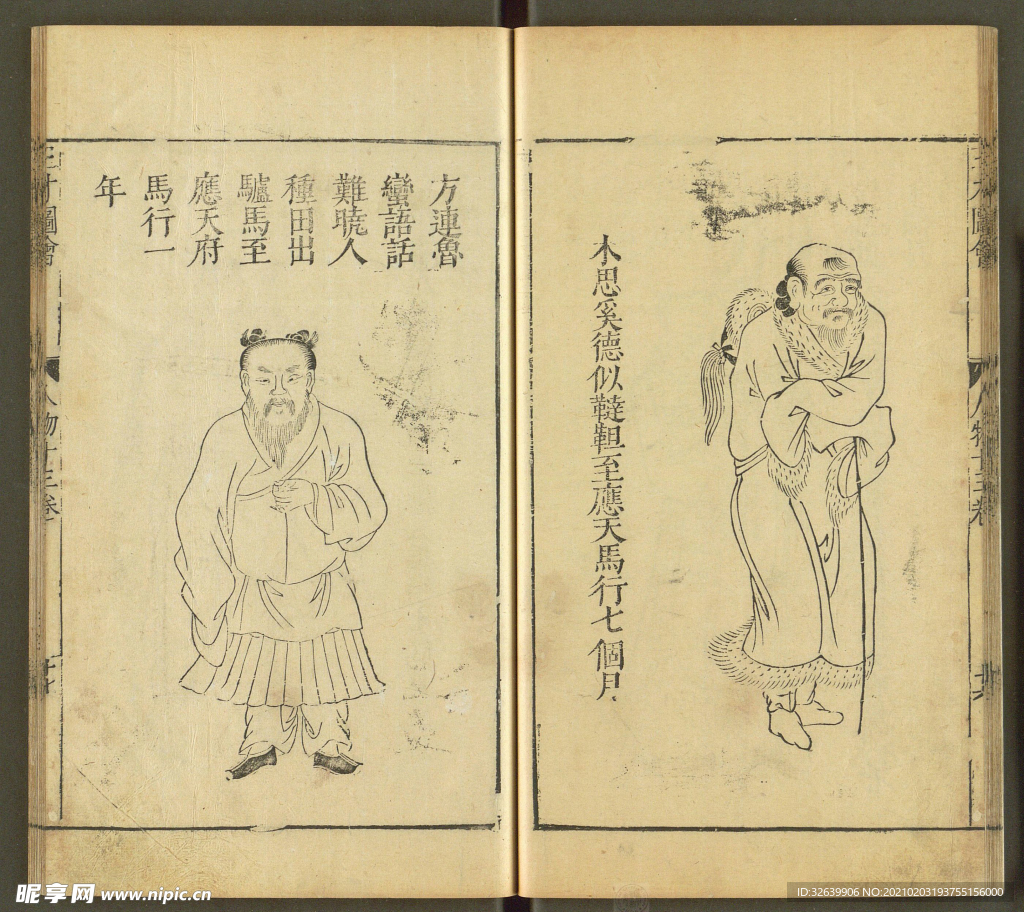 三才圖會
人物十三卷
木思奚德似韃靼至應天馬行七個月
方連魯
蠻語話
難曉人
種田出
驢馬至
應天府
馬行一
年
三才圖會
人物十三卷
昵享网 www.nipic.cn
ID:32639906 NO:20210203193755156000